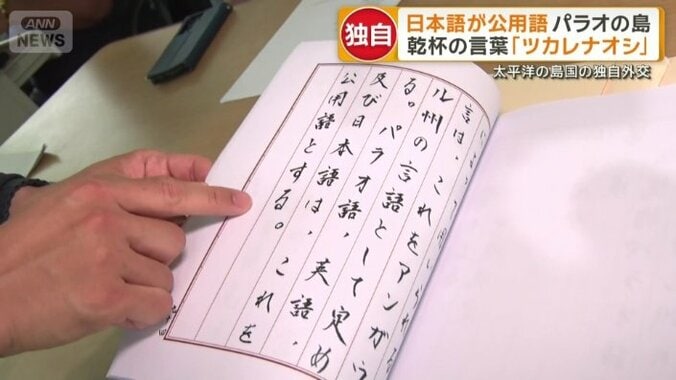 ANN NEWS
独自
日本語が公用語 パラオの島
乾杯の言葉「ツカレナオシ」
太平洋の島国の独自外交
用いられる
言は、これをアンガウ
ル州の言語として定め
る。パラオ語、英語、
及び日本語は、これを
公用語とする。